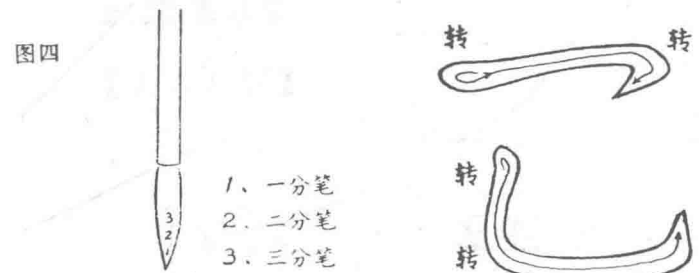 图四
3
2
1
1、一分笔
2、二分笔
3、三分笔
转
转
转
转